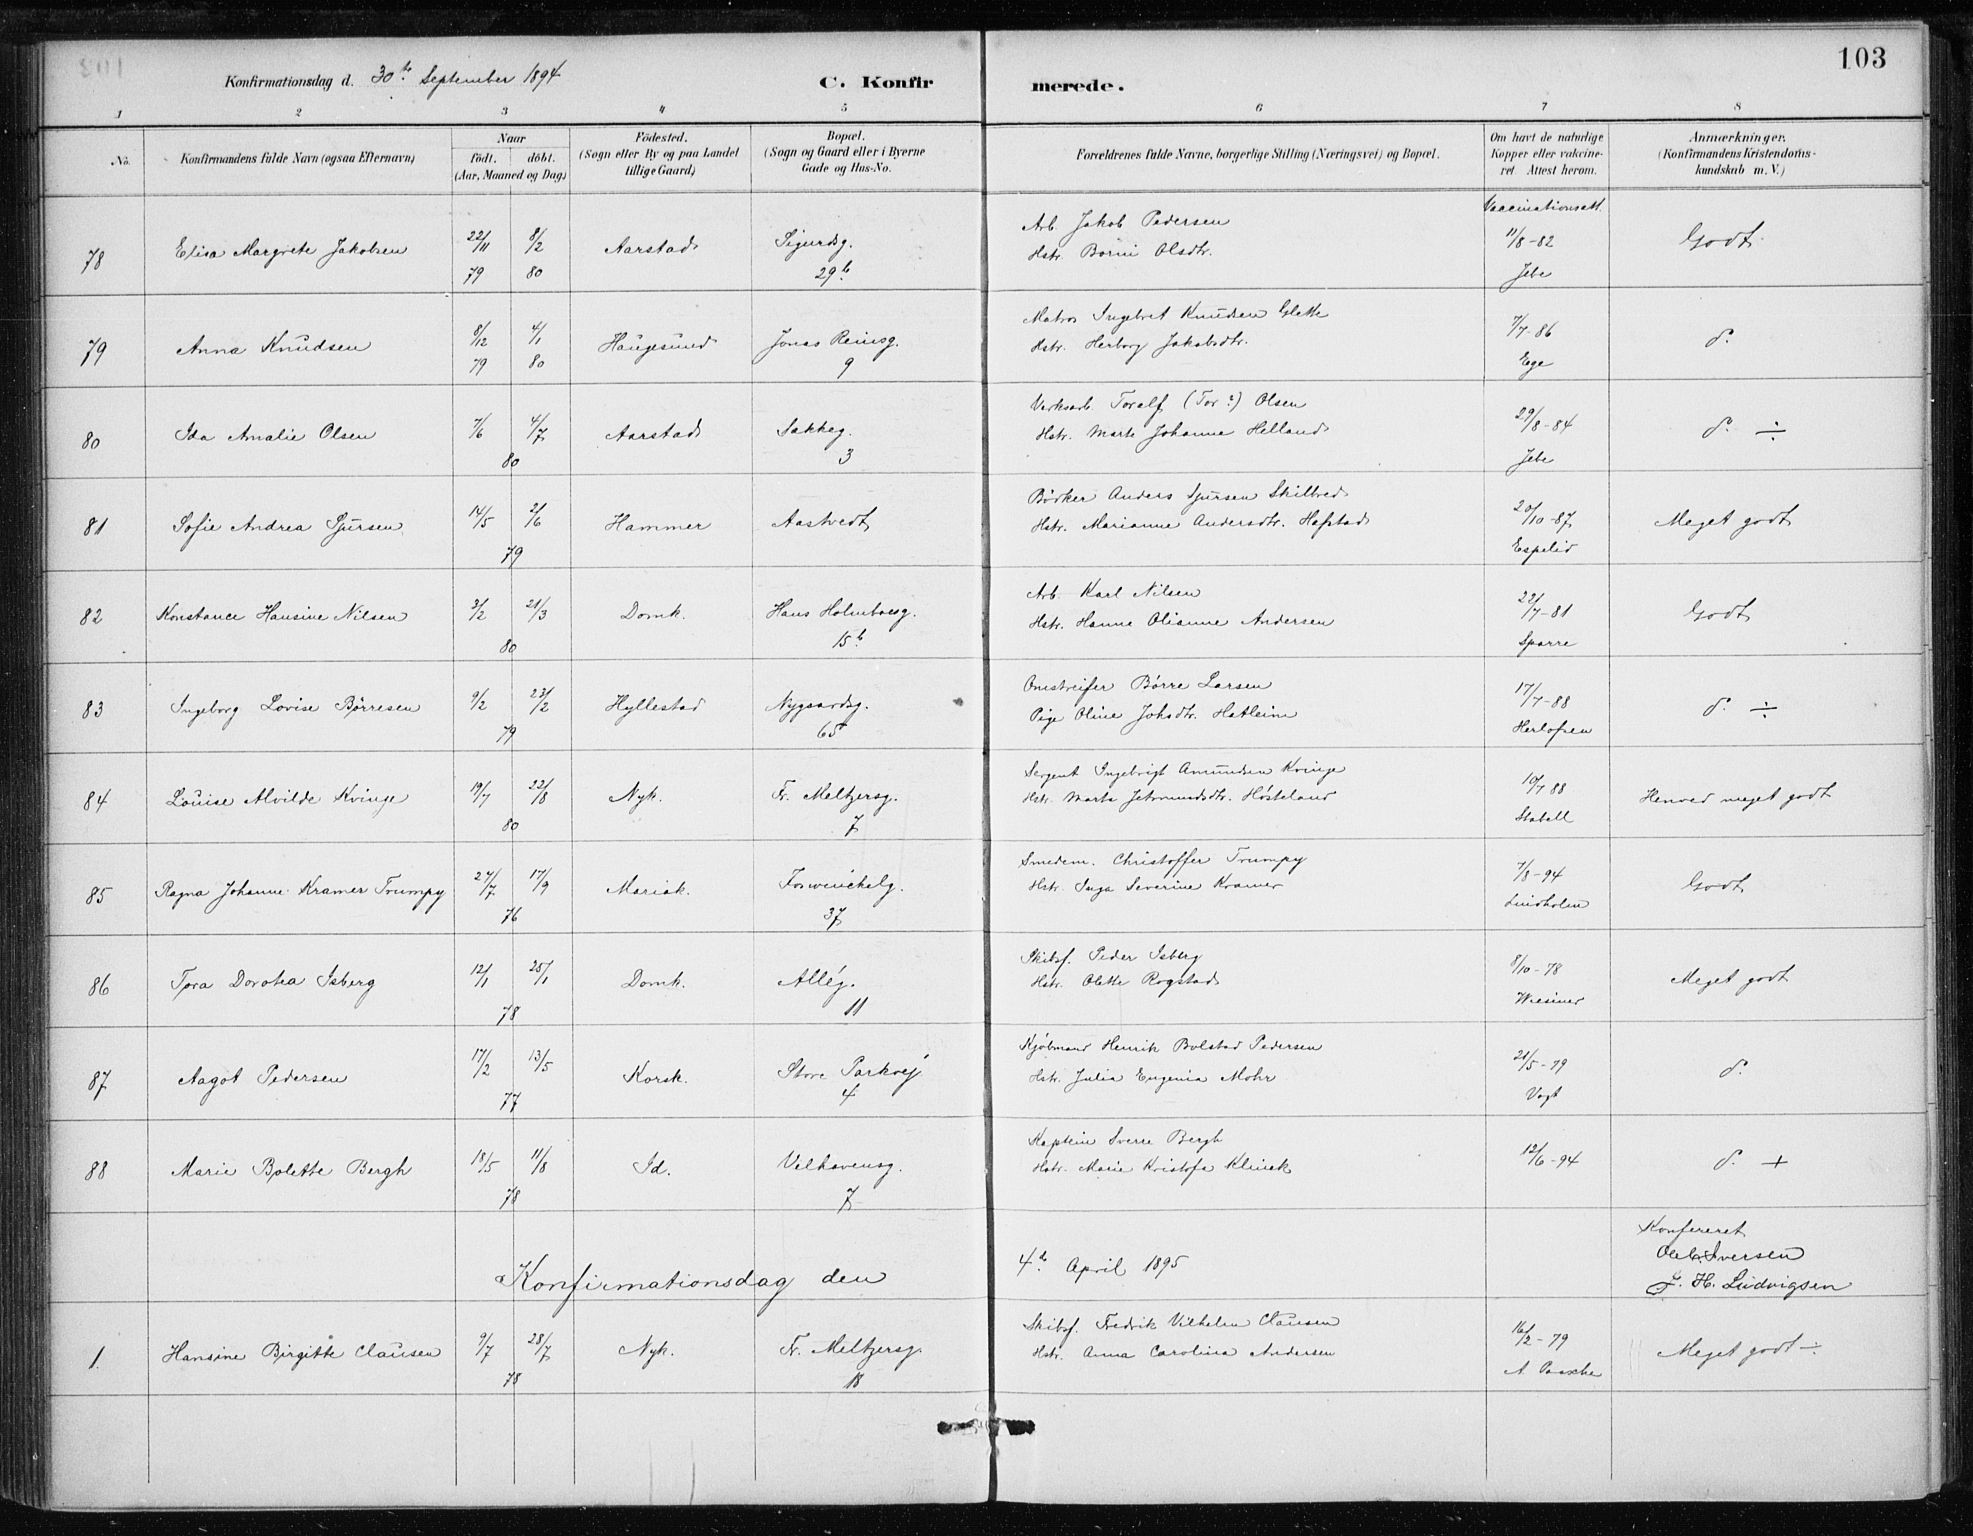 103
Konfirmationsdag d. 30te September 1894
C. Konfirmerede.
1 2 3 4 5 6 7 8
No. Konfirmandens fulde Navn (ogsaa Efternavn) Naar födt. döbt. (Aar, Maaned og Dag) Födested. (Sogn eller By og paa Landet tillige Gaard) Bopæl. (Sogn og Gaard eller i Byerne Gade og Hus-No. Forældrenes fulde Navne, borgerlige Stilling (Næringsvei) og Bopæl. Om havt de naturlige Kopper eller vakcineret Attest herom. Anmærkninger. (Konfirmandens Kristendomskundskab m. V.)
78 Elisa Margrete Jakobsen 22/11 79 8/2 80 Aarstad Sigurdsg. 29b
Arb Jakob Pedersen
Hstr. Olsdtr.
Vaccinationsatt. 11/8-82 Jebe Godt
79 Anna Knudsen 8/12 79 4/1 80 Haugesund Jonas Reinsg. 9
Matros Ingebret Knudsen Glette
Hstr. Herborg Jakobsdtr.
7/7-86 Ege d.
80 Ida Amalie Olsen 7/6 4/7 80 Aarstad Bakkeg. 3
Verksarb. Toralf (Tor?) Olsen
Hstr. Marte Johanne Helland
29/8-84 Jebe d. ÷
81 Sofie Andrea Sjursen 14/5 2/6 79 Hammer Aastvedt
Bödker Anders Sjursen Skilbred
Hstr. Marianne Andersdtr. Hafstad
20/10-87 Espelid Meget godt
82 Konstance Hansine Nilsen 3/2 21/3 80 Domk. Hans Holmboesg. 15b
Arb. Karl Nilsen
Hstr. Hanne Olianne Andersen
22/7-81 Sparre Godt
83 Ingeborg Lovise Børresen 9/2 23/2 79 Hyllestad Nygaardsg. 65
Omstreifer Börre Larsen
Pige Oline Johsdtr. Hatleim
17/7-88 Herlofsen d. ÷
84 Louise Alvilde Kvinge 19/7 22/8 80 Nyk. Fr. Meltzersg. 7
Sergent Ingebrigt Amundsen Kvinge
Hstr. Marta Høsteland
10/7 88 Stabell Henved meget godt
85 Ragna Johanne Kramer Trumpy 27/7 17/9 76 Mariak. Foswinckelg. 37
Smedem. Christoffer Trumpy
Hstr. Inga Severine Kramer
7/8-94 Lindholm Godt
86 Tora Dorotea Isberg 12/1 25/1 78 Domk. Allég. 11
Skibsf. Peder Isberg
Hstr. Olette Rogstad
8/10-78 Wiesener Meget godt
87 Aagot Pedersen 17/2 13/5 77 Korsk. Store Parkvej 4
Kjöbmand Henrik Bolstad Pedersen
Hstr. Julia Eugenia Mohr
21/5-79 Vogt d.
88 Marie Bolette Bergh 18/5 11/8 78 Id. Velhavensg. 7
Kaptein Sverre Bergh
Hstr. Marie Kristofa Klinck
12/6-94 d. +
Konfereret
Iversen
J. H. Ludvigsen
Konfirmationsdag den 4de April 1895
1. Hansine Birgitte Clausen 9/7 28/7 78 Nyk. Fr. Meltzersg. 18
Skibsf. Fredrik Vilhelm Clausen
Hstr. Anna Carolina Andersen
16/2-79 A. Paasche Meget godt ÷